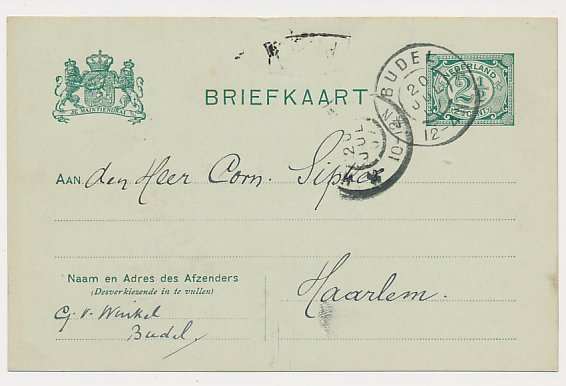 JE MAINTIENDRAI
BRIEFKAART
NEDERLAND
2½
CENT
BUDEL
20
JUL
12-
20
JUL
AAN den Heer Corn. Sipkes
Haarlem.
Naam en Adres des Afzenders
(Desverkiezende in te vullen)
G. v. Winkel
Budel